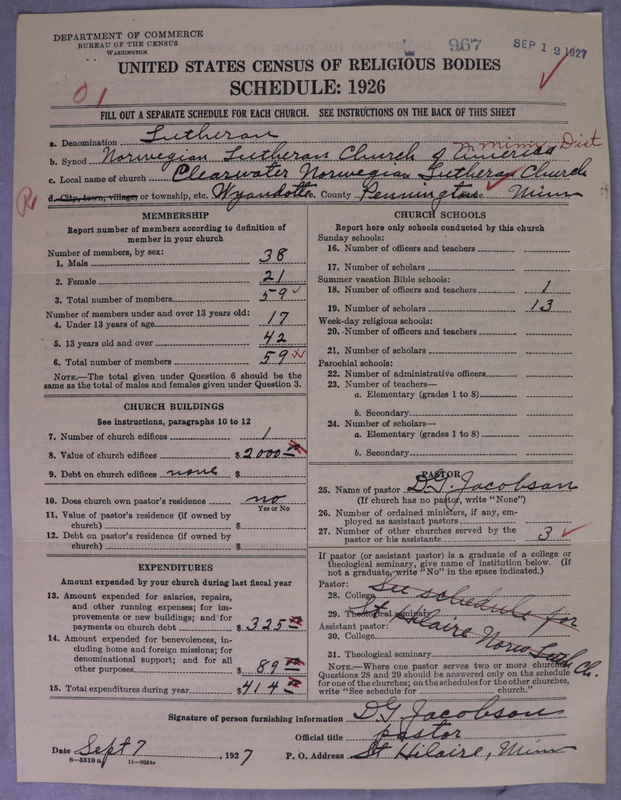 DEPARTMENT OF COMMERCE
BUREAU OF THE CENSUS
WASHINGTON
967
SEP 12 1927
UNITED STATES CENSUS OF RELIGIOUS BODIES
SCHEDULE: 1926
01
FILL OUT A SEPARATE SCHEDULE FOR EACH CHURCH. SEE INSTRUCTIONS ON THE BACK OF THIS SHEET
a. Denomination Lutheran
b. Synod Norwegian Lutheran Church of America Dist
c. Local name of church Clearwater Norwegian Lutheran Church
d. City, town, village, or township, etc. Wyandotte. County Pennington Minn
R
MEMBERSHIP
Report number of members according to definition of
member in your church
Number of members, by sex:
1. Male 38
2. Female 21
3. Total number of members 59
Number of members under and over 13 years old:
4. Under 13 years of age 17
5. 13 years old and over 42
6. Total number of members 59
NOTE.—The total given under Question 6 should be
the same as the total of males and females given under Question 3.
CHURCH BUILDINGS
See instructions, paragraphs 10 to 12
7. Number of church edifices 1
8. Value of church edifices $2000
9. Debt on church edifices none $
10. Does church own pastor's residence? no
Yes or No
11. Value of pastor's residence (if owned by
church) $
12. Debt on pastor's residence (if owned by
church) $
EXPENDITURES
Amount expended by your church during last fiscal year
13. Amount expended for salaries, repairs,
and other running expenses; for im-
provements or new buildings; and for
payments on church debt $ 325
14. Amount expended for benevolences, in-
cluding home and foreign missions; for
denominational support; and for all
other purposes $ 89
15. Total expenditures during year $414
CHURCH SCHOOLS
Report here only schools conducted by this church
Sunday schools:
16. Number of officers and teachers
17. Number of scholars
Summer vacation Bible schools:
18. Number of officers and teachers 1
19. Number of scholars 13
Week-day religious schools:
20. Number of officers and teachers
21. Number of scholars
Parochial schools:
22. Number of administrative officers
23. Number of teachers—
a. Elementary (grades 1 to 8)
b. Secondary
24. Number of scholars—
a. Elementary (grades 1 to 8)
b. Secondary
PASTOR
25. Name of pastor D.G. Jacobson
(If church has no pastor, write "None")
26. Number of ordained ministers, if any, em-
ployed as assistant pastors
27. Number of other churches served by the
pastor or his assistants 3
If pastor (or assistant pastor) is a graduate of a college or
theological seminary, give name of institution below. (If
not a graduate, write "No" in the space indicated.)
Pastor:
28. College See schedule for
29. Theological seminary St Hilaire Norw Luth Ch.
Assistant pastor:
30. College
31. Theological seminary
NOTE.—Where one pastor serves two or more churches
Questions 28 and 29 should be answered only on the schedule
for one of the churches; on the schedules for the other churches,
write "See schedule for church."
Signature of person furnishing information DG Jacobson
Official title pastor
Date Sept 7, 1927 P. O. Address St Hilaire, Minn
8—5518a 11—9054